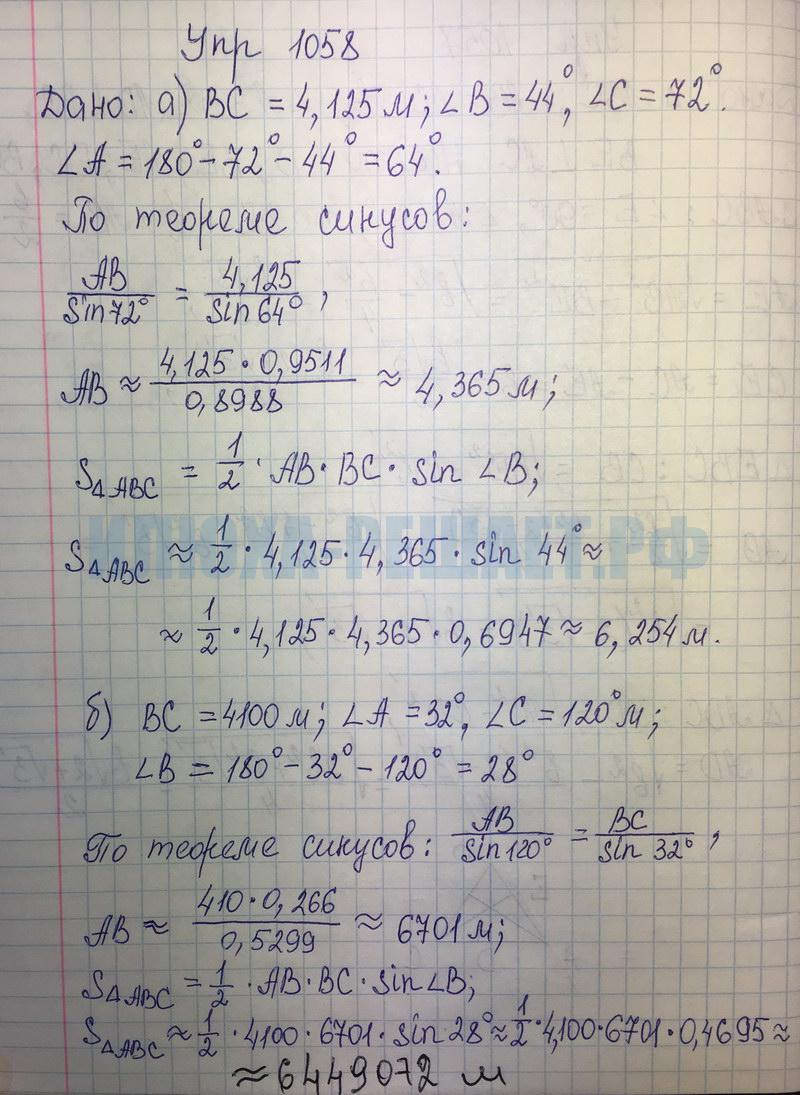 Упр 1058
Дано: а) BC = 4,125 м; ∠B = 44°, ∠C = 72°.
∠A = 180° - 72° - 44° = 64°.
По теореме синусов:
AB/sin72° = 4,125/sin64°,
AB ≈ 4,125·0,9511/0,8988 ≈ 4,365 м;
S△ABC = 1/2 · AB · BC · sin ∠B;
ИЛЮХА-РЕШАЕТ.РФ
S△ABC ≈ 1/2 · 4,125 · 4,365 · sin 44° ≈
≈ 1/2 · 4,125 · 4,365 · 0,6947 ≈ 6,254 м.
б) BC = 4100 м; ∠A = 32°, ∠C = 120° м;
∠B = 180° - 32° - 120° = 28°
По теореме синусов: AB/sin120° = BC/sin 32°,
AB ≈ 410·0,266/0,5299 ≈ 6701 м;
S△ABC = 1/2 · AB · BC · sin∠B;
S△ABC ≈ 1/2 · 4100 · 6701 · sin 28° ≈ 1/2 · 4,100 · 6701 · 0,4695 ≈
≈ 6449072 м